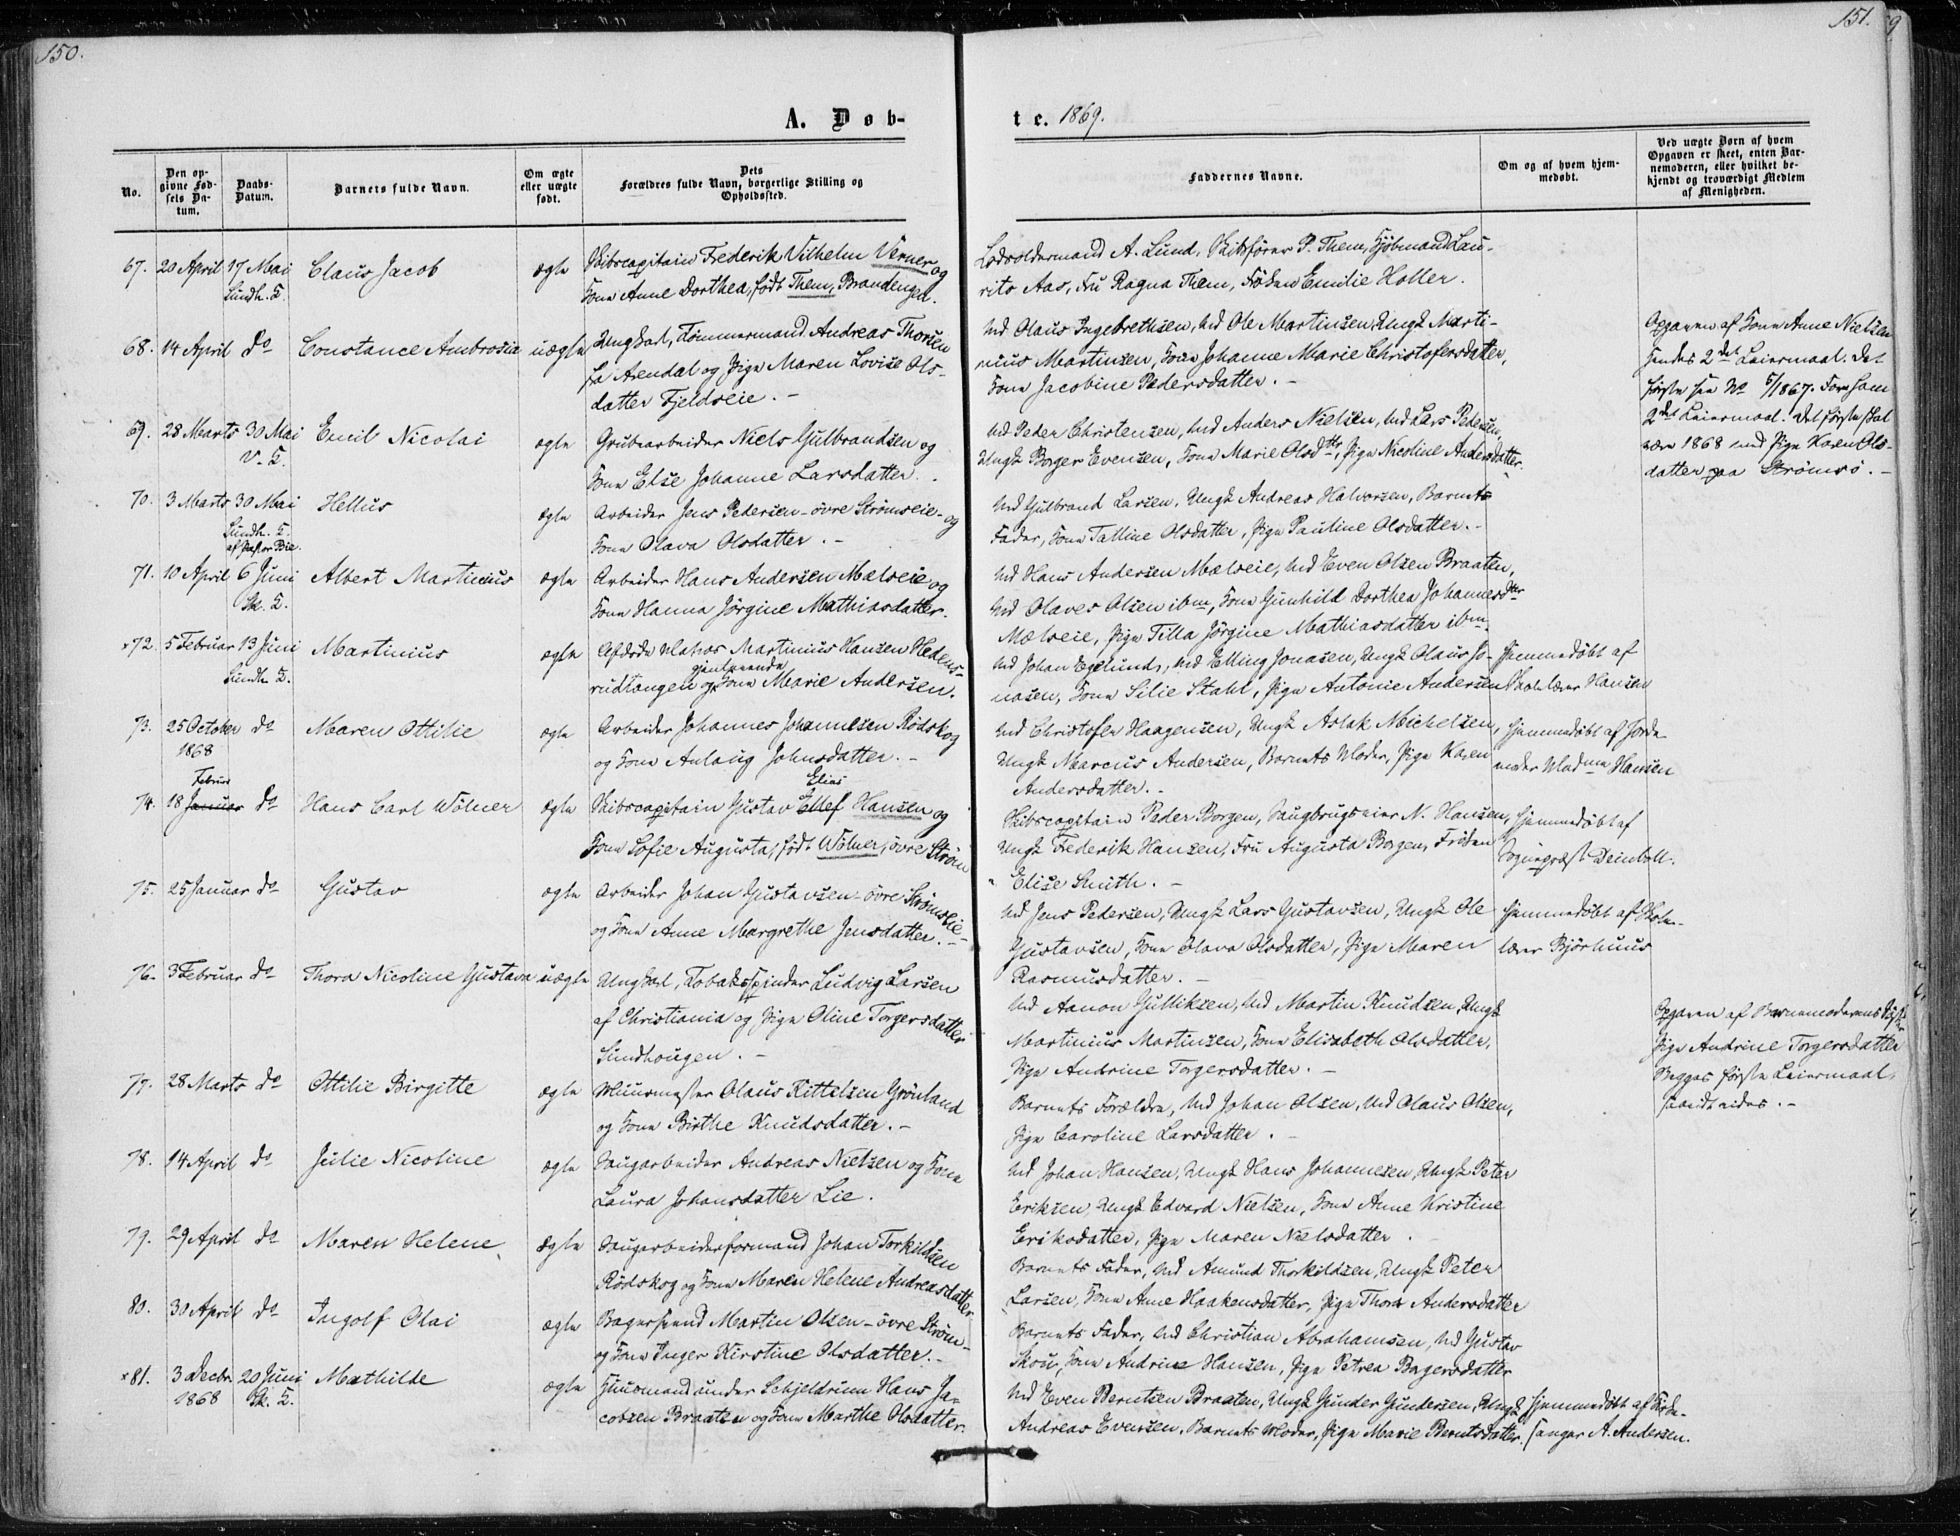 150.
151.
A. Døb-
te. 1869.
No.
Den opgivne Fødsels Datum.
Daabs-Datum.
Barnets fulde Navn.
Om ægte eller uægte født.
Dets Forældres fulde Navn, borgerlige Stilling og Opholdssted.
Faddernes Navne.
Om og af hvem hjemmedøbt.
Ved uægte Børn af hvem Opgaven er skeet, enten Barnemoderen, eller hvilket bekjendt og troværdigt Medlem af Menigheden.
67. 20 April 17 Mai Claus Jacob ægte Skibscapitain Frederik Vilhelm Verner og
Sundh. T. Kone Anne Dorthea, født Them, Brandenged.
Lodsoldermand A. Lund, Skibsfører P. Them, Kjöbmand Lau-
rits Aas, Fru Ragna Them, Fröken Emilie Holler.
68. 14 April do Constance Ambrosia uægte Ungkarl, Tömmermand Andreas Thorsen
fra Arendal og Pige Maren Lovise Ols-
datter Fjeldseie. -
Md Olaus Ingebrethsen, Md Ole Martinsen, Ungk Marti-
nius Martinsen, Kone Johanne Marie Christofersdatter,
Kone Jacobine Pedersdatter. -
Opgaven af Kone Anne Nielsen
hendes 2det Leiermaal. Det
første see No 5/1867. For ham
2det Leiermaal. Det første skal
være 1868 med Pige Karen Ols-
datter paa Strömsö. -
69. 28 Marts 30 Mai Emil Nicolai ægte Grubearbeider Niels Gulbrandsen og
V. T. Kone Else Johanne Larsdatter.
Md Peder Christensen, Md Anders Nielsen, Md Lars Pedersen,
Ungk Borger Evensen, Kone Marie Olsdtr, Pige Nicoline Andersdatter.
70. 3 Marts 30 Mai Hellus ægte Arbeider Jens Pedersen - övre Strömseie - og
Sundh. T.
af Pastor Bie. Kone Olava Olsdatter. -
Md Gulbrand Larsen, Ungk Andreas Halvorsen, Barnets
Fader, Kone Talline Olsdatter, Pige Pauline Olsdatter. -
71. 10 April 6 Juni Albert Martinius ægte Arbeider Hans Andersen Mælseie og
Sk. T. Kone Hanna Jörgine Mathiasdatter.
Md Hans Andersen Mælseie, Md Even Olsen Braaten,
Md Olaves Olsen ibm, Kone Gunhild Dorthea Johannesdtr
Mælseie, Pige Tilla Jörgine Mathiasdatter ibm.
×72. 5 Februar 13 Juni Martinius ægte Afdøde Matros Martinius Hansen Hedens-
Sundh. T. rudtangen og gjenlevende Kone Marie Andersen.
Md Johan Egelund, Md Elling Jonasen, Ungk Olaus Jo-
nasen, Kone Silie Stahl, Pige Antonie Andersen
Hjemmedøbt af
Skolelærer Hansen
73. 25 October 1868 do Maren Ottilie ægte Arbeider Johannes Johannesen Rödskog
og Kone Anlaug Johnsdatter. -
Md Christofer Haagensen, Ungk Aslak Michelsen,
Ungk Marcus Andersen, Barnets Moder, Pige Karen
Andersdatter. -
Hjemmedøbt af Jorde-
moder Madme Hansen
74. 18 Januar Februar do Hans Carl Wölner ægte Skibscapitain Gustav Ellef Elias Hansen og
Kone Sofie Augusta, født Wölner, övre Ström
Skibscapitain Peder Borgen, Saugbrugseier N. Hansen,
Ungk Frederik Hansen, Fru Augusta Borgen, Fröken
Elise Smith. -
Hjemmedøbt af
Sognepræst Deinboll.
75. 25 Januar do Gustav ægte Arbeider Johan Gustavsen - övre Strömseie -
og Kone Anne Margrethe Jensdatter. -
Md Jens Pedersen, Ungk Lars Gustavsen, Ungk Ole
Gustavsen, Kone Olava Olsdatter, Pige Maren
Rasmusdatter. -
Hjemmedøbt af Skole-
lærer Björhuus
76. 3 Februar do Thora Nicoline Gustava uægte Ungkarl, Tobaksspinder Ludvig Larsen
af Christiania og Pige Oline Torgersdatter
Sundhougen. -
Md Aanon Gulliksen, Md Martin Knudsen, Ungk
Martinius Martinsen, Kone Elisabeth Olsdatter,
Pige Andrine Torgersdatter. -
Opgaven af Barnemoderens Søster
Pige Andrine Torgersdatter
Begges første Leiermaal,
saavidt vides. -
77. 28 Marts do Ottilie Birgitte ægte Muurmester Olaus Kittelsen Grönland
og Kone Birthe Knudsdatter. -
Barnets Forældre, Md Johan Olsen, Md Olaus Olsen,
Pige Caroline Larsdatter. -
78. 14 April do Julie Nicoline ægte Saugarbeider Andreas Nielsen og Kone
Laura Johansdatter Lie.
Md Johan Hansen, Ungk Hans Johannesen, Ungk Peter
Eriksen, Ungk Edvard Nielsen, Kone Anne Kristine
Eriksdatter, Pige Maren Nielsdatter.
79. 29 April do Maren Helene ægte Saugarbeiderformand Johan Torkildsen
Rödskog og Kone Maren Helene Andreasdatter
Barnets Fader, Md Amund Thorkildsen, Ungk Peter
Larsen, Kone Anne Haakensdatter, Pige Thora Andersdatter
80. 30 April do Ingolf Olai ægte Bagersvend Martin Olsen - övre Ström -
og Kone Inger Kirstine Olsdatter. -
Barnets Fader, Md Christian Abrahamsen, Md Gustav
Skou, Kone Andrine Hansen, Pige Petrea Borgersdatter
×81. 3 Decbr. 1868 20 Juni Mathilde ægte Huusmand under Schjeldrum Hans Ja-
Sk. T. cobsen Braaten og Kone Marthe Olsdatter.
Md Even Berntsen Braaten, Ungk Gunder Gundersen, Ungk
Andreas Evensen, Barnets Moder, Pige Marie Berntsdatter.
Hjemmedøbt af Kirke-
sanger A. Andersen.